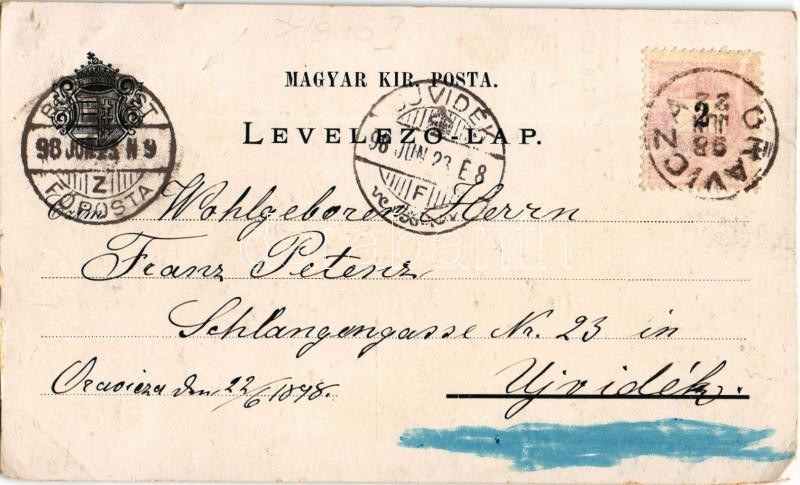 MAGYAR KIR. POSTA.
LEVELEZŐ-LAP.
98 JUN. 23. N 9
Z
FŐPOSTA
UJVIDÉK
98 JUN 23 E 8
F
ORAVICZA
98
22
2
Czím Wohlgeboren Herrn
Franz Petenz
Schlangengasse Nr. 23 in
Ujvidék.
Oravicza den 22/6 1898.
darabanth